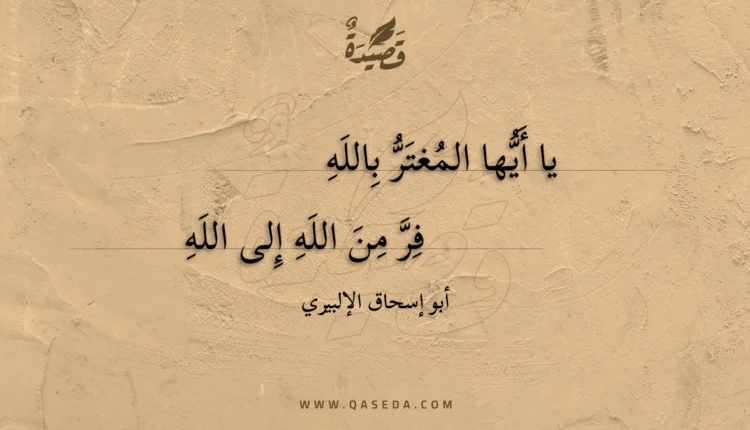 قَصِيدَةٌ
يا أَيُّها المُغتَرُّ بِاللَهِ
فِرَّ مِنَ اللَهِ إِلى اللَهِ
أبو إسحاق الإلبيري
WWW.QASEDA.COM